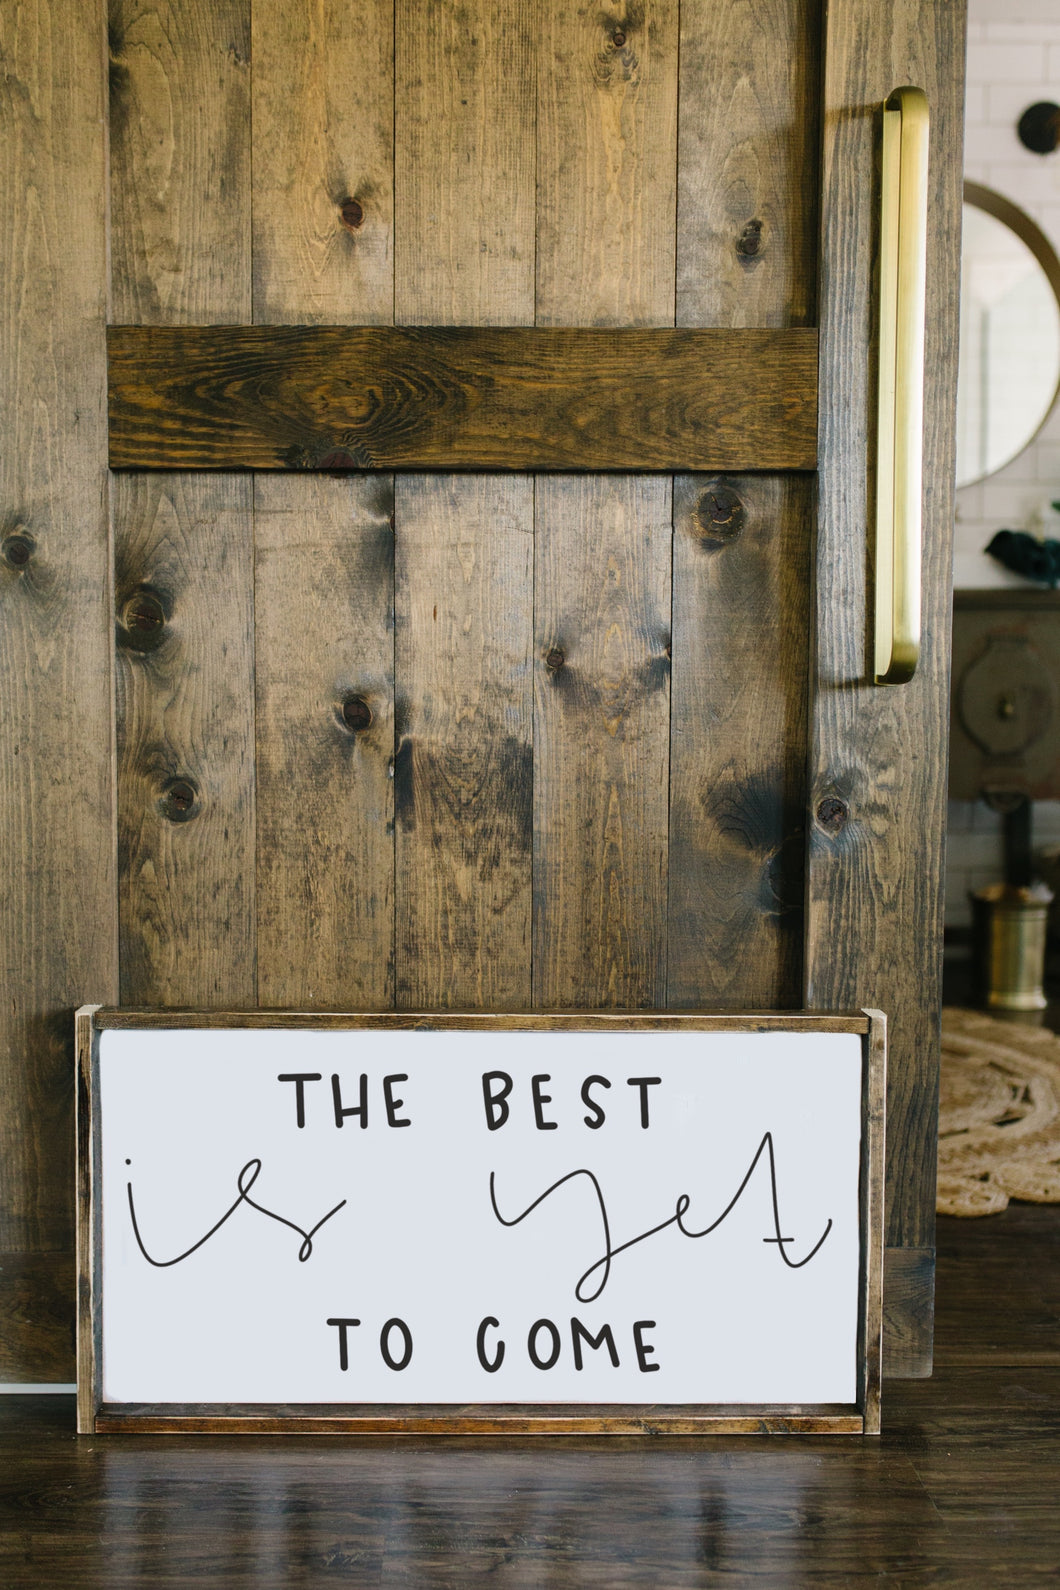 THE BEST
is yet
TO COME